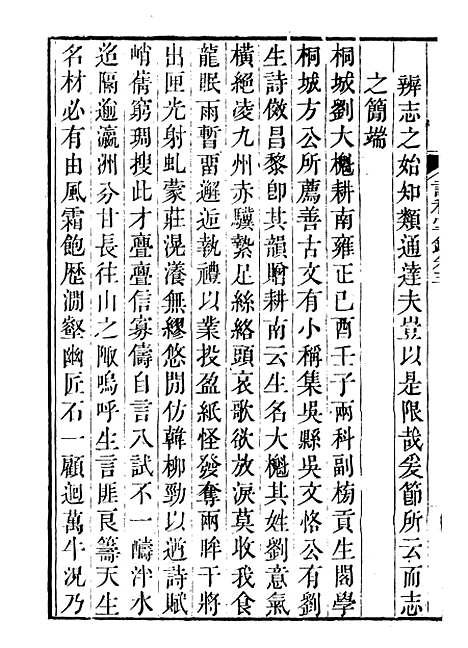 辨志之始知類通達夫豈以是限哉爰節所云而志
之簡端
桐城劉大櫆耕南雍正己酉壬子兩科副榜貢生閣學
桐城方公所薦善古文有小稱集吳縣吳文恪公有劉
生詩儆昌黎卽其韻贈耕南云生名大櫆其姓劉意氣
橫絕凌九州赤驥縶足絲絡頭哀歌欲放淚莫收我食
龍眠雨暫畱邂逅執禮以業投盈紙怪發奪兩眸干將
出匣光射虬蒙莊滉瀁無繆悠閒仿韓柳勁以遒詩賦
峭蒨窮琱搜此才亹亹信寡儔自言八試不一醻泮水
迄隔逾瀛洲分甘長往山之陬嗚呼生言匪良籌天生
名材必有由風霜飽歷澗壑幽匠石一顧迴萬牛況乃